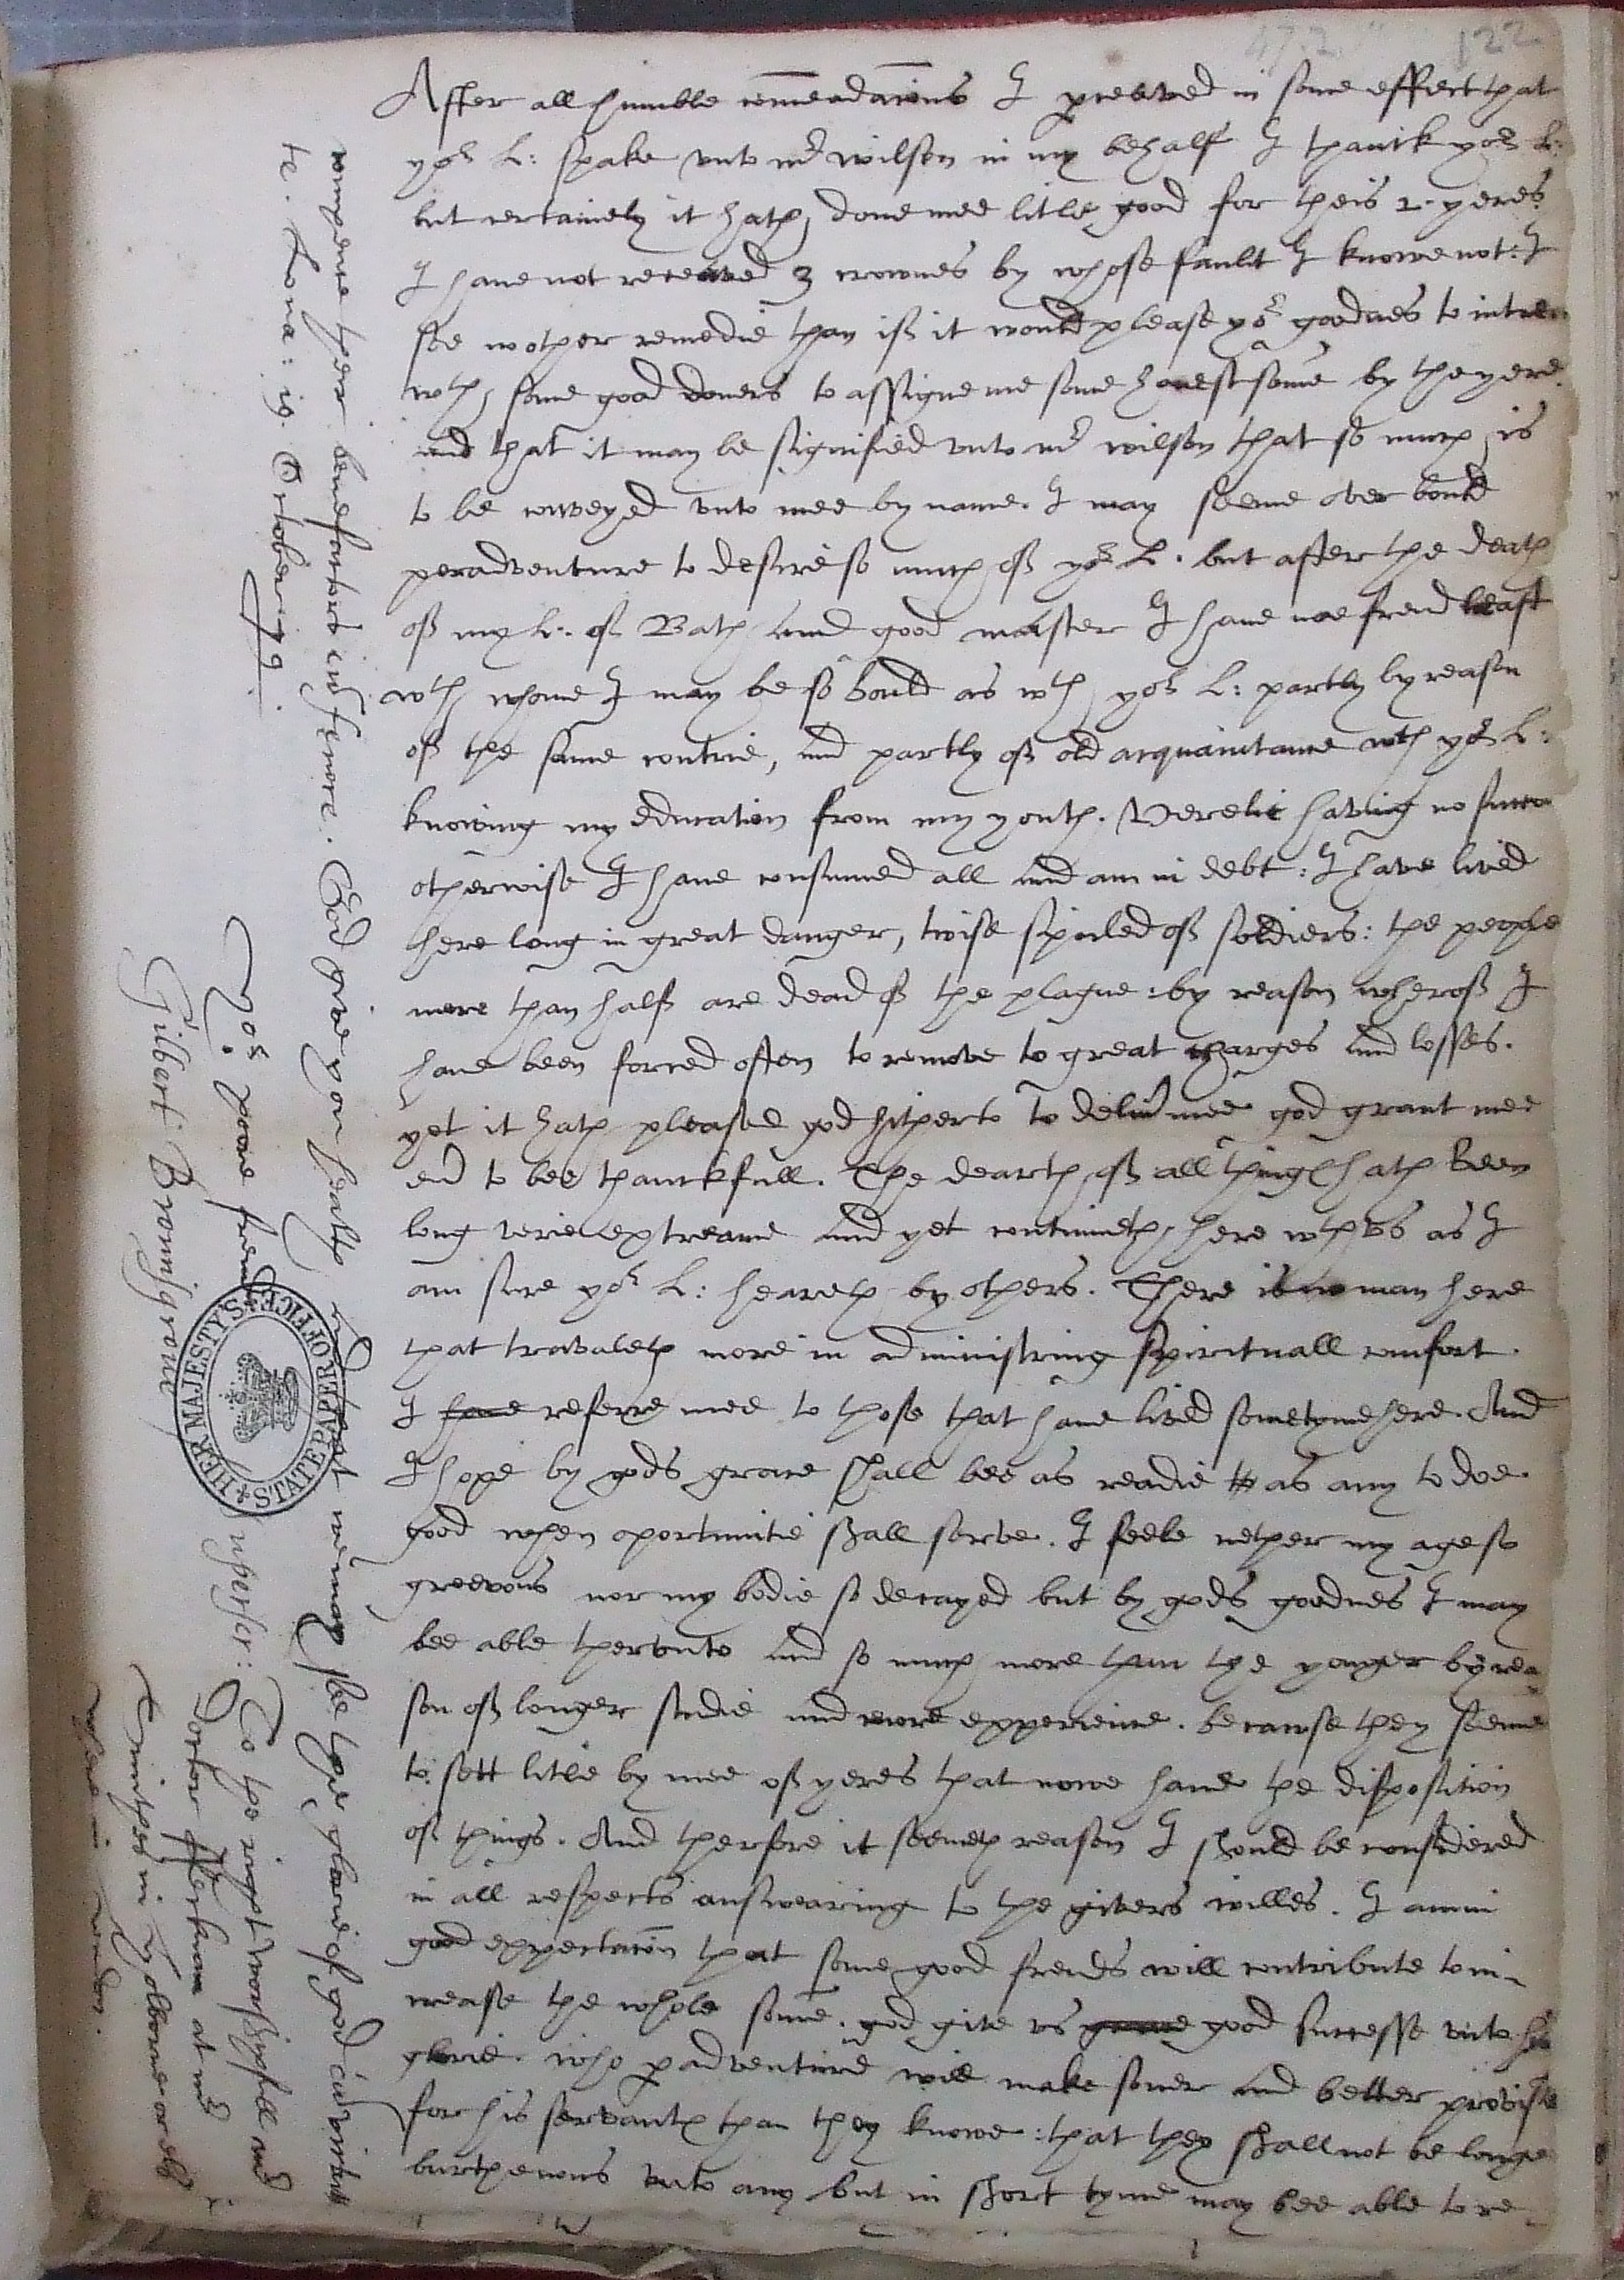 122
After all humble comendacions I p[er]ceived in some effect that
yor L: spake unto mr wilson in my behalf I thanck yor L:
but certainely it hath done mee litle good for theis 2. yeres
I have not receaved 3 crownes by whose fault I knowe not: I
see no other remedie than if it would please yor goodnes to
wth some good doners to assigne me some honest some by the yere.
and that it may be signified unto mr wilson that so much is
to be conveyed unto mee by name. I may seeme over bould
peradventure to desire so much of yor L. but after the death
of my L: of Bath and good master I have noe frend least
wth whome I may be so bould as wth yor L: partly by reason
of the same contrie, and partly of old acquaintance wth yor L:
knowing my education from my youth. Verelie having no
otherwise I have consumed all and am in debt: I have lived
here long in great danger, twise spoiled of soldiers: the people
more than half are dead of the plague: by reason wherof I
have been forced often to remove to great charges and losses.
yet it hath pleased god hitherto to deliv mee god grant mee
to bee thanckfull. The dearth of all things hath been
long verie extreame and yet continueth here wth us as I
am sure yor L: heareth by others. There is no man here
that travaleth more in administring spirituall comfort.
I have referre mee to those that have lived sometyme here. And
I hope by gods grace shall bee as readie as any to doe
good when oportunitie shall serve. I feele nether my age so
greevous nor my bodie so decayed but by gods goodnes I may
bee able therunto and so much more than the yonger by rea-
son of longer studie and more experience. because they seeme
to sett litle by mee of yeres that nowe have the disposition
of things. And therfore it seemeth reason I should be considered
in all respects answearing to the givers willes. I am in
good expectacion that some good frends will contribute to in-
crease the whole some. god give us good successe unto his
glorie. who p[er]adventure will make soner and better
for his servants than they knowe: that they shall not be longe
burthenous unto any but in short tyme may bee able to re-
compence ther benefactors evermore. God give you health
that wee may see the glorie of god
te. Lova: ig. Octobe
Yor poore frend
Gilbert Bromsgrove
HER MAJESTY'S STATE PAPER OFFICE
superscr: To the right worshipfull mr
Doctor at mr
in Holborne or els
where in London.